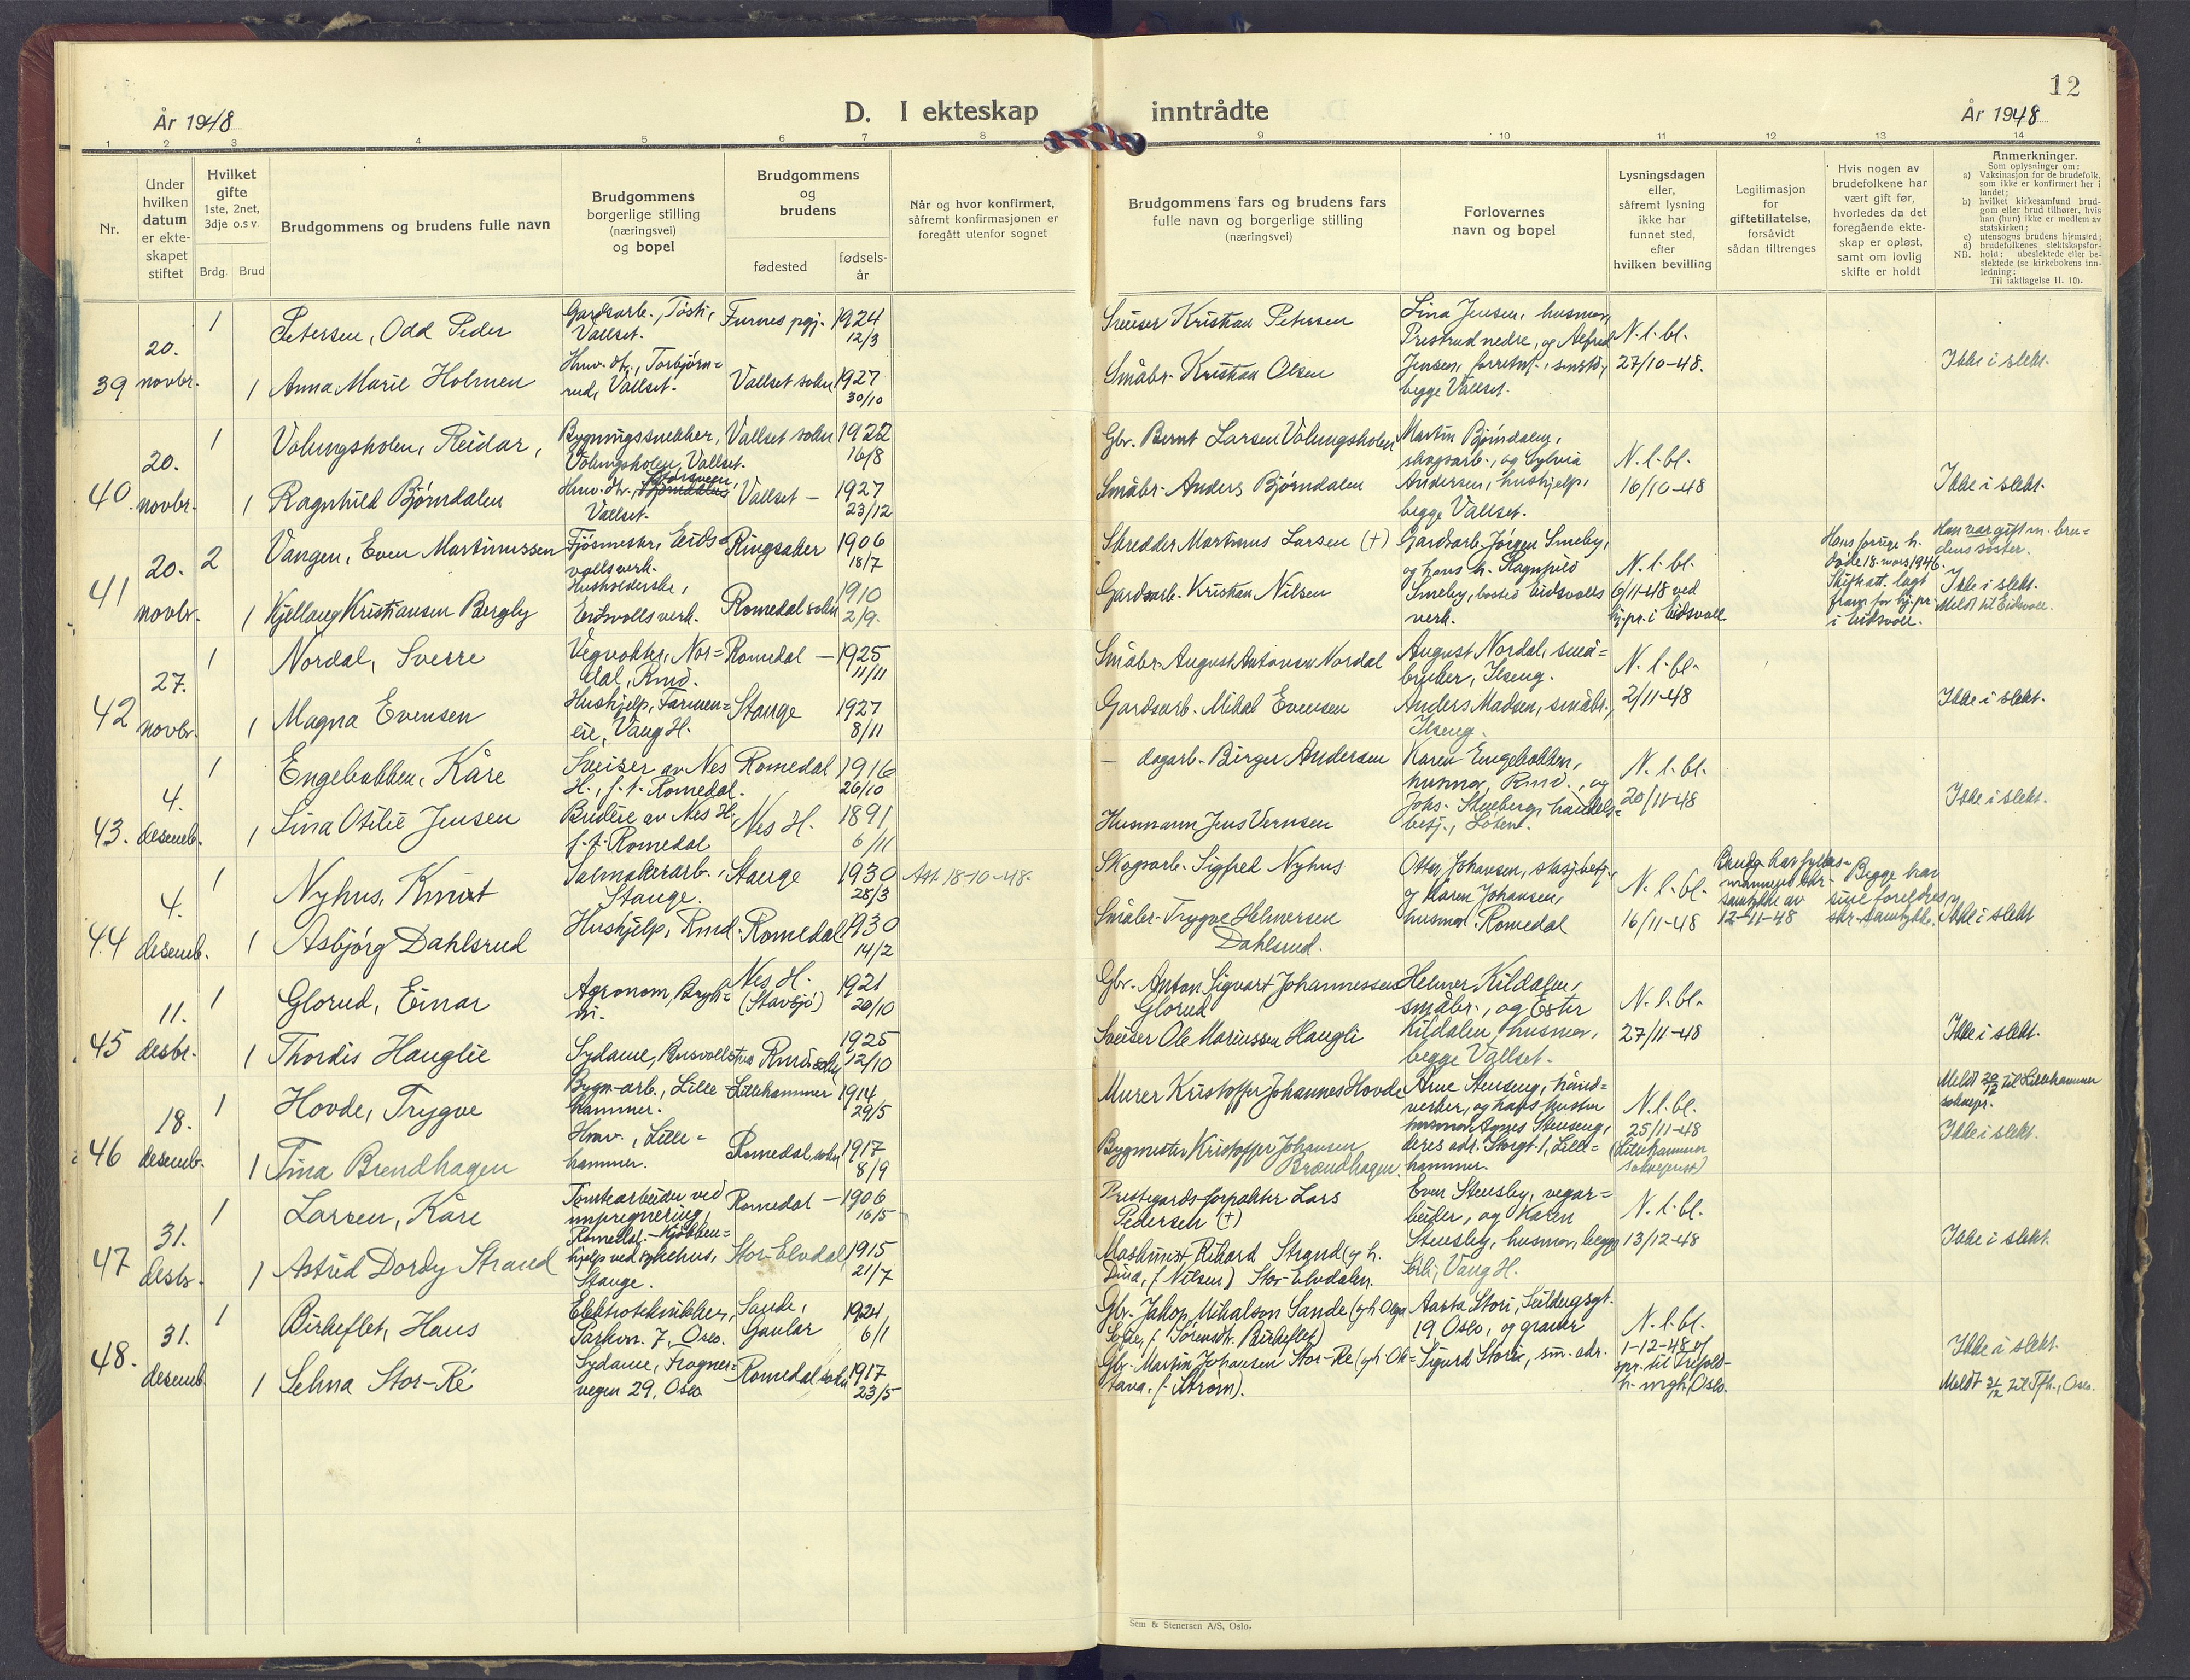 12
År 1948
D. I ekteskap inntrådte
År 1948
1 2 3 4 5 6 7 8 9 10 11 12 13 14
Nr.
Under
hvilken
datum
er ekte-
skapet
stiftet
Hvilket
gifte
1ste, 2net,
3dje o.s v.
Brdg. Brud
Brudgommens og brudens fulle navn
Brudgommens
borgerlige stilling
(næringsvei)
og bopel
Brudgommens
og
brudens
fødested
fødsels-
år
Når og hvor konfirmert,
såfremt konfirmasjonen er
foregått utenfor sognet
Brudgommens fars og brudens fars
fulle navn og borgerlige stilling
(næringsvei)
Forlovernes
navn og bopel
Lysningsdagen
eller,
såfremt lysning
ikke har
funnet sted,
efter
hvilken bevilling
Legitimasjon
for
giftetillatelse,
forsåvidt
sådan tiltrenges
Hvis nogen av
brudefolkene har
vært gift før,
hvorledes da det
foregående ekte-
skap er opløst,
samt om lovlig
skifte er holdt
Anmerkninger.
Som oplysninger om:
a) Vaksinasjon for de brudefolk,
som ikke er konfirmert her i
landet;
b) hvilket kirkesamfund brud-
gom eller brud tilhører, hvis
han (hun) ikke er medlem av
statskirken;
c) utensogns brudens hjemsted;
d) brudefolkenes slektskapsfor-
NB. hold; ubeslektede eller be-
slektede (se kirkebokens inn-
ledning;
Til iakttagelse II. 10).
39
20.
novbr.
1
Petersen, Odd Peder
Gardsarb., Tosti,
Vallset.
Furnes pgj.
1924
12/3
1
Anna Marie Holmen
Hmv. dtr., Torbjørn=
rud, Vallset.
Vallset sokn
1927
30/10
Sveiser Kristian Petersen
Småbr. Kristian Olsen
Lina Jensen, husmor,
Prestrud nedre, og Alfred
Jensen, forretnf., smstd.,
begge Vallset.
N. l. bl.
27/10-48.
Ikke i slekt.
40
20.
novbr.
1
Volungsholen, Reidar,
Bygningssnekker,
Volungsholen, Vallset.
Vallset sokn
1922
16/8
1
Ragnhild Bjørndalen
Hmv. dtr., Bjørndalen,
Vallset.
Vallset —
1927
23/12
Gbr. Bernt Larsen Volungsholen
Småbr. Anders Bjørndalen
Martin Bjørndalen,
skogsarb., og Sylvia
Andersen, hushjelp,
begge Vallset.
N. l. bl.
16/10-48
Ikke i slekt.
41
20.
novbr.
2
Vangen, Even Martinussen
Fjøsmester, Eids=
vollsverk.
Ringsaker
1906
18/7
1
Kjellaug Kristiansen Bergby
Husholderske,
Eidsvolls verk.
Romedal sokn
1910
2/9.
Skredder Martinus Larsen (†)
Gardsarb. Kristian Nilsen
Gardsarb. Jørgen Smeby,
og hans h. Ragnhild
Smeby, bosted Eidsvolls
verk.
N. l. bl.
6/11-48 ved
hj.pr. i Eidsvoll
Hans forrige h.
døde 18. mars 1946.
Skifteatt. lagt
fram for hj.pr.
i Eidsvoll.
Han var gift m. bru=
dens søster.
Ikke i slekt.
Meldt til Eidsvoll.
42
27.
novbr.
1
Nordal, Sverre
Vegvokter, Nor=
dal, Rmd.
Romedal —
1925
11/11
1
Magna Evensen
Hushjelp, Farmen=
eie, Vang H.
Stange
1927
8/11
Småbr. August Antonsen Nordal
Gardsarb. Mikal Evensen
August Nordal, små=
bruker, Ilseng.
Anders Madsen, småbr.,
Ilseng.
N. l. bl.
2/11-48
Ikke i slekt.
43.
4.
desemb.
1
Engebakken, Kåre
Sveiser av Nes
H., f. t. Romedal.
Romedal
1916
26/10
1
Lina Otilie Jensen
Budeie av Nes H.,
f. t. Romedal
Nes H.
1891
6/11
— dagarb. Birger Andersen
Husmann Jens Vernsen
Karen Engebakken,
husmor, Rmd., og
Johs. Stueberg, handels=
betj., Løten.
N. l. bl.
20/11-48
Ikke i slekt.
44
4.
desemb.
1
Nyhus, Knut
Salmakerarb.,
Stange.
Stange
1930
28/3
Att. 18-10-48.
1
Asbjørg Dahlsrud
Hushjelp, Rmd.
Romedal
1930
14/2
Skogsarb. Sigfred Nyhus
Småbr. Trygve Helmersen
Dahlsrud.
Otto Johansen, stasj.betj.,
og Karen Johansen,
husmor. Romedal
N. l. bl.
16/11-48
Brudg. har fylkes=
mannens
samtykke av
12-11-48
Begge har
sine foreldres
skr. samtykke.
Ikke i slekt
45
11.
desbr.
1
Glorud, Einar
Agronom,
Nes H.
(Stavsjø)
1921
20/10
1
Thordis Hauglie
Sydame,
Rmd. sokn
1925
12/10
Gbr. Anton Sigvart Johannessen
Glorud
Sveiser Ole Mariussen Haugli
Helmer Kildalen,
småbr., og Ester
Kildalen, husmor,
begge Vallset.
N. l. bl.
27/11-48
Ikke i slekt.
46
18.
desemb.
1
Hovde, Trygve
Bygn. arb., Lille=
hammer.
Lillehammer
1914
29/5
1
Tina Brendhagen
Hmv., Lille=
hammer.
Romedal sokn
1917
8/9
Murer Kristoffer Johannes Hovde
Bygmester Kristoffer Johansen
Brændhagen.
Arne Stenseng, hånd=
verker, og hans hustru
husmor Agnes Stenseng,
deres adr. Storgt. 1, Lille=
hammer.
N. l. bl.
25/11-48
(Lillehammer
sokneprest)
Meldt 20/12 til Lillehammer
sokнepr.
Ikke i slekt.
47
31.
desbr.
1
Larsen, Kåre
Tomtearbeider ved
impregnering,
Romedal.
Romedal —
1906
16/5
1
Astrid Dordy Strand
Kjøkken=
hjelp ved sykehus,
Stange.
Stor-Elvdal
1915
21/7
Prestegards-forpakter Lars
Pedersen (†)
Maskinist Rikard Strand (og h.
Dina, f. Nilsen) Stor-Elvdalen.
Even Stensby, vegar=
beider, og Karen
Stensby, husmor, begge
Sørli, Vang H.
N. l. bl.
13/12-48
Ikke i slekt.
48.
31.
desemb.
1
Birkeflet, Hans
Elektrotekniker,
Parkvn. 7, Oslo.
Sande,
Gaular
1924
6/1
1
Selma Stor-Re
Sydame, Frogner=
vegen 29, Oslo
Romedal sokn
1917
23/5
Gbr. Jakop Mikalson Sande (gh. Olga
Sofie, f. Sørensdtr. Birkeflet)
Gbr. Martin Johansen Stor-Re (gh. Ok=
tava, f. Strøm).
Aasta Stori, Seildugsgt.
19, Oslo, og gravør
Sigurd Storie, sm. adr.
N. l. bl.
1-12-48 af
spr. til Trefold-
h. mgh. Oslo.
Ikke i slekt.
Meldt 31/12 til Tfh., Oslo.
Sem & Stenersen A/S, Oslo.